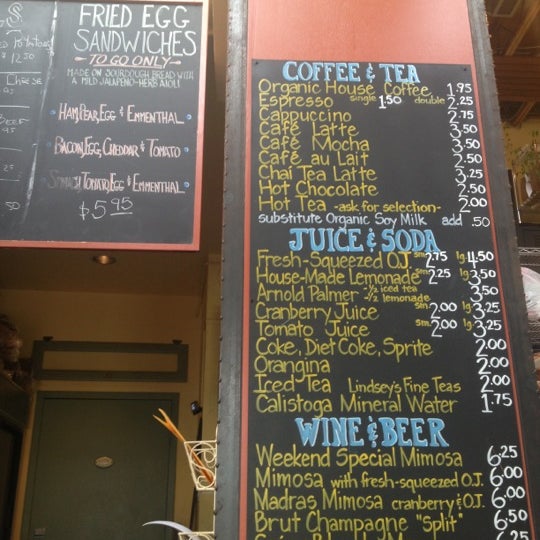 FRIED EGG
SANDWICHES
TO GO ONLY
MADE ON SOURDOUGH BREAD WITH
A MILD JALAPEÑO-HERB AIOLI
HAM, PEAR, EGG & EMMENTHAL
BACON, EGG, CHEDDAR & TOMATO
SPINACH, TOMATO, EGG & EMMENTHAL
$5.95
COFFEE & TEA
Organic House Coffee 1.75
Espresso single 1.50 double 2.25
Cappuccino 2.75
Café Latte 3.50
Café Mocha 3.50
Café au Lait 2.50
Chai Tea Latte 3.25
Hot Chocolate 2.50
Hot Tea -ask for selection- 2.00
substitute Organic Soy Milk add .50
JUICE & SODA
Fresh-Squeezed O.J. sm 2.75 lg 4.50
House-Made Lemonade sm 2.25 lg 3.50
Arnold Palmer -½ iced tea -½ lemonade 3.50
Cranberry Juice sm 2.00 lg 3.25
Tomato Juice sm 2.00 lg 3.25
Coke, Diet Coke, Sprite 2.00
Orangina 2.00
Iced Tea Lindsey's Fine Teas 2.00
Calistoga Mineral Water 1.75
WINE & BEER
Weekend Special Mimosa 6.25
Mimosa with fresh-squeezed O.J. 6.00
Madras Mimosa cranberry & O.J. 6.00
Brut Champagne "Split" 6.50